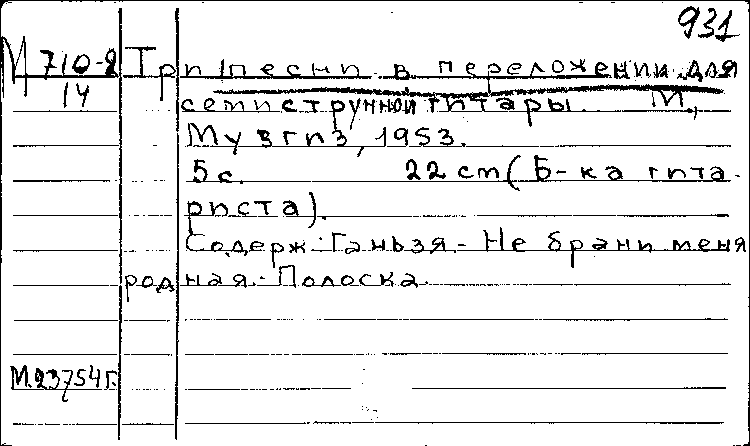 931
М 710-2 Три песни в переложении для
14 семиструнной гитары. М.,
Музгиз, 1953.
5 с. 22 cm (Б-ка гита-
риста).
Содерж.: Ганьзя.- Не брани меня
родная.- Полоска.
М.23754 г.